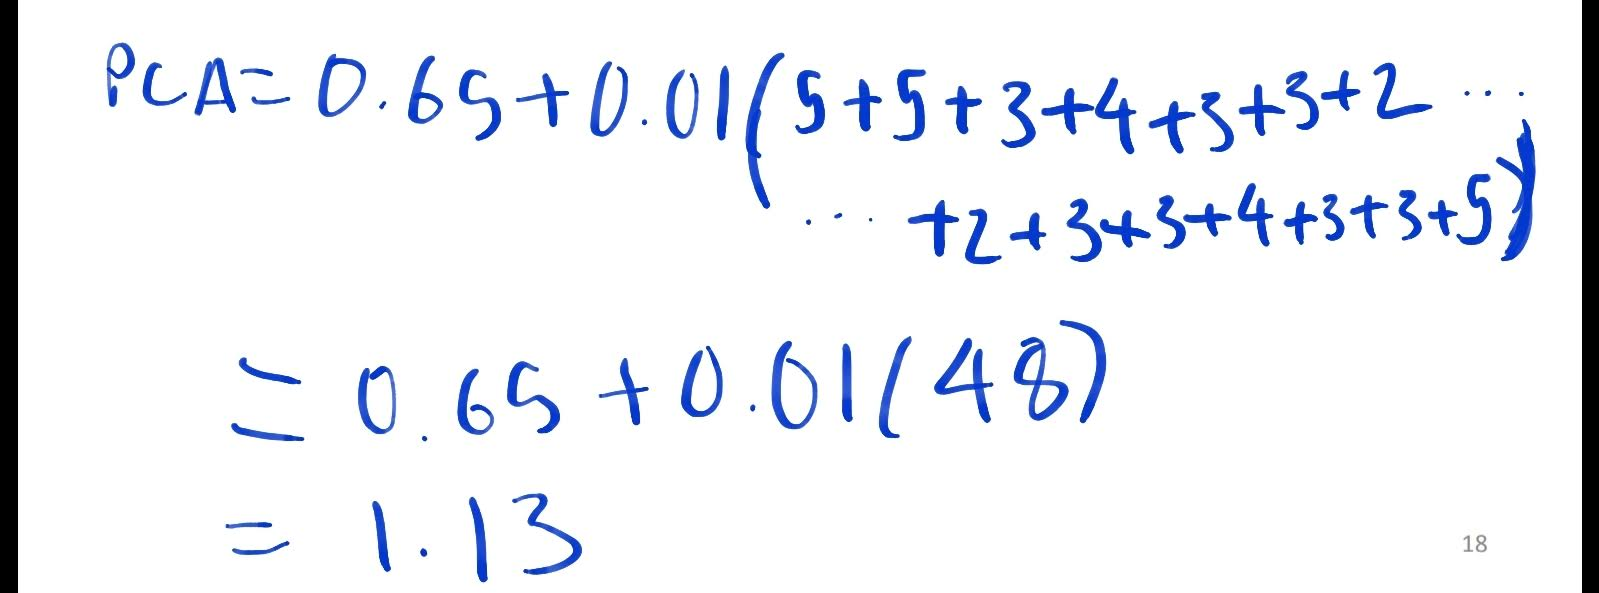 PCA= 0.65+0.01(5+5+3+4+3+3+2 ...
... +2+3+3+4+3+3+5)
= 0.65+0.01(48)
= 1.13
18